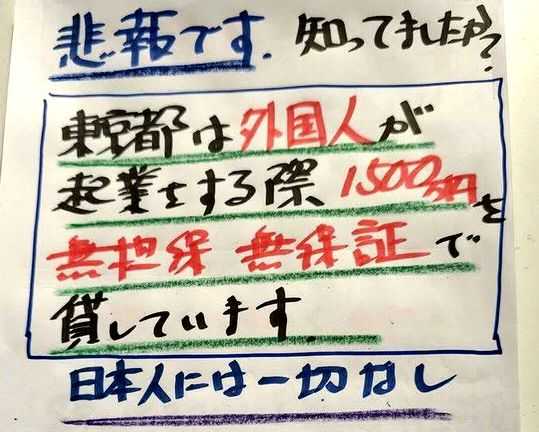 悲報です. 知ってましたか?
東京都は外国人が
起業をする際1500万円を
無担保 無保証で
貸しています.
日本人には一切なし